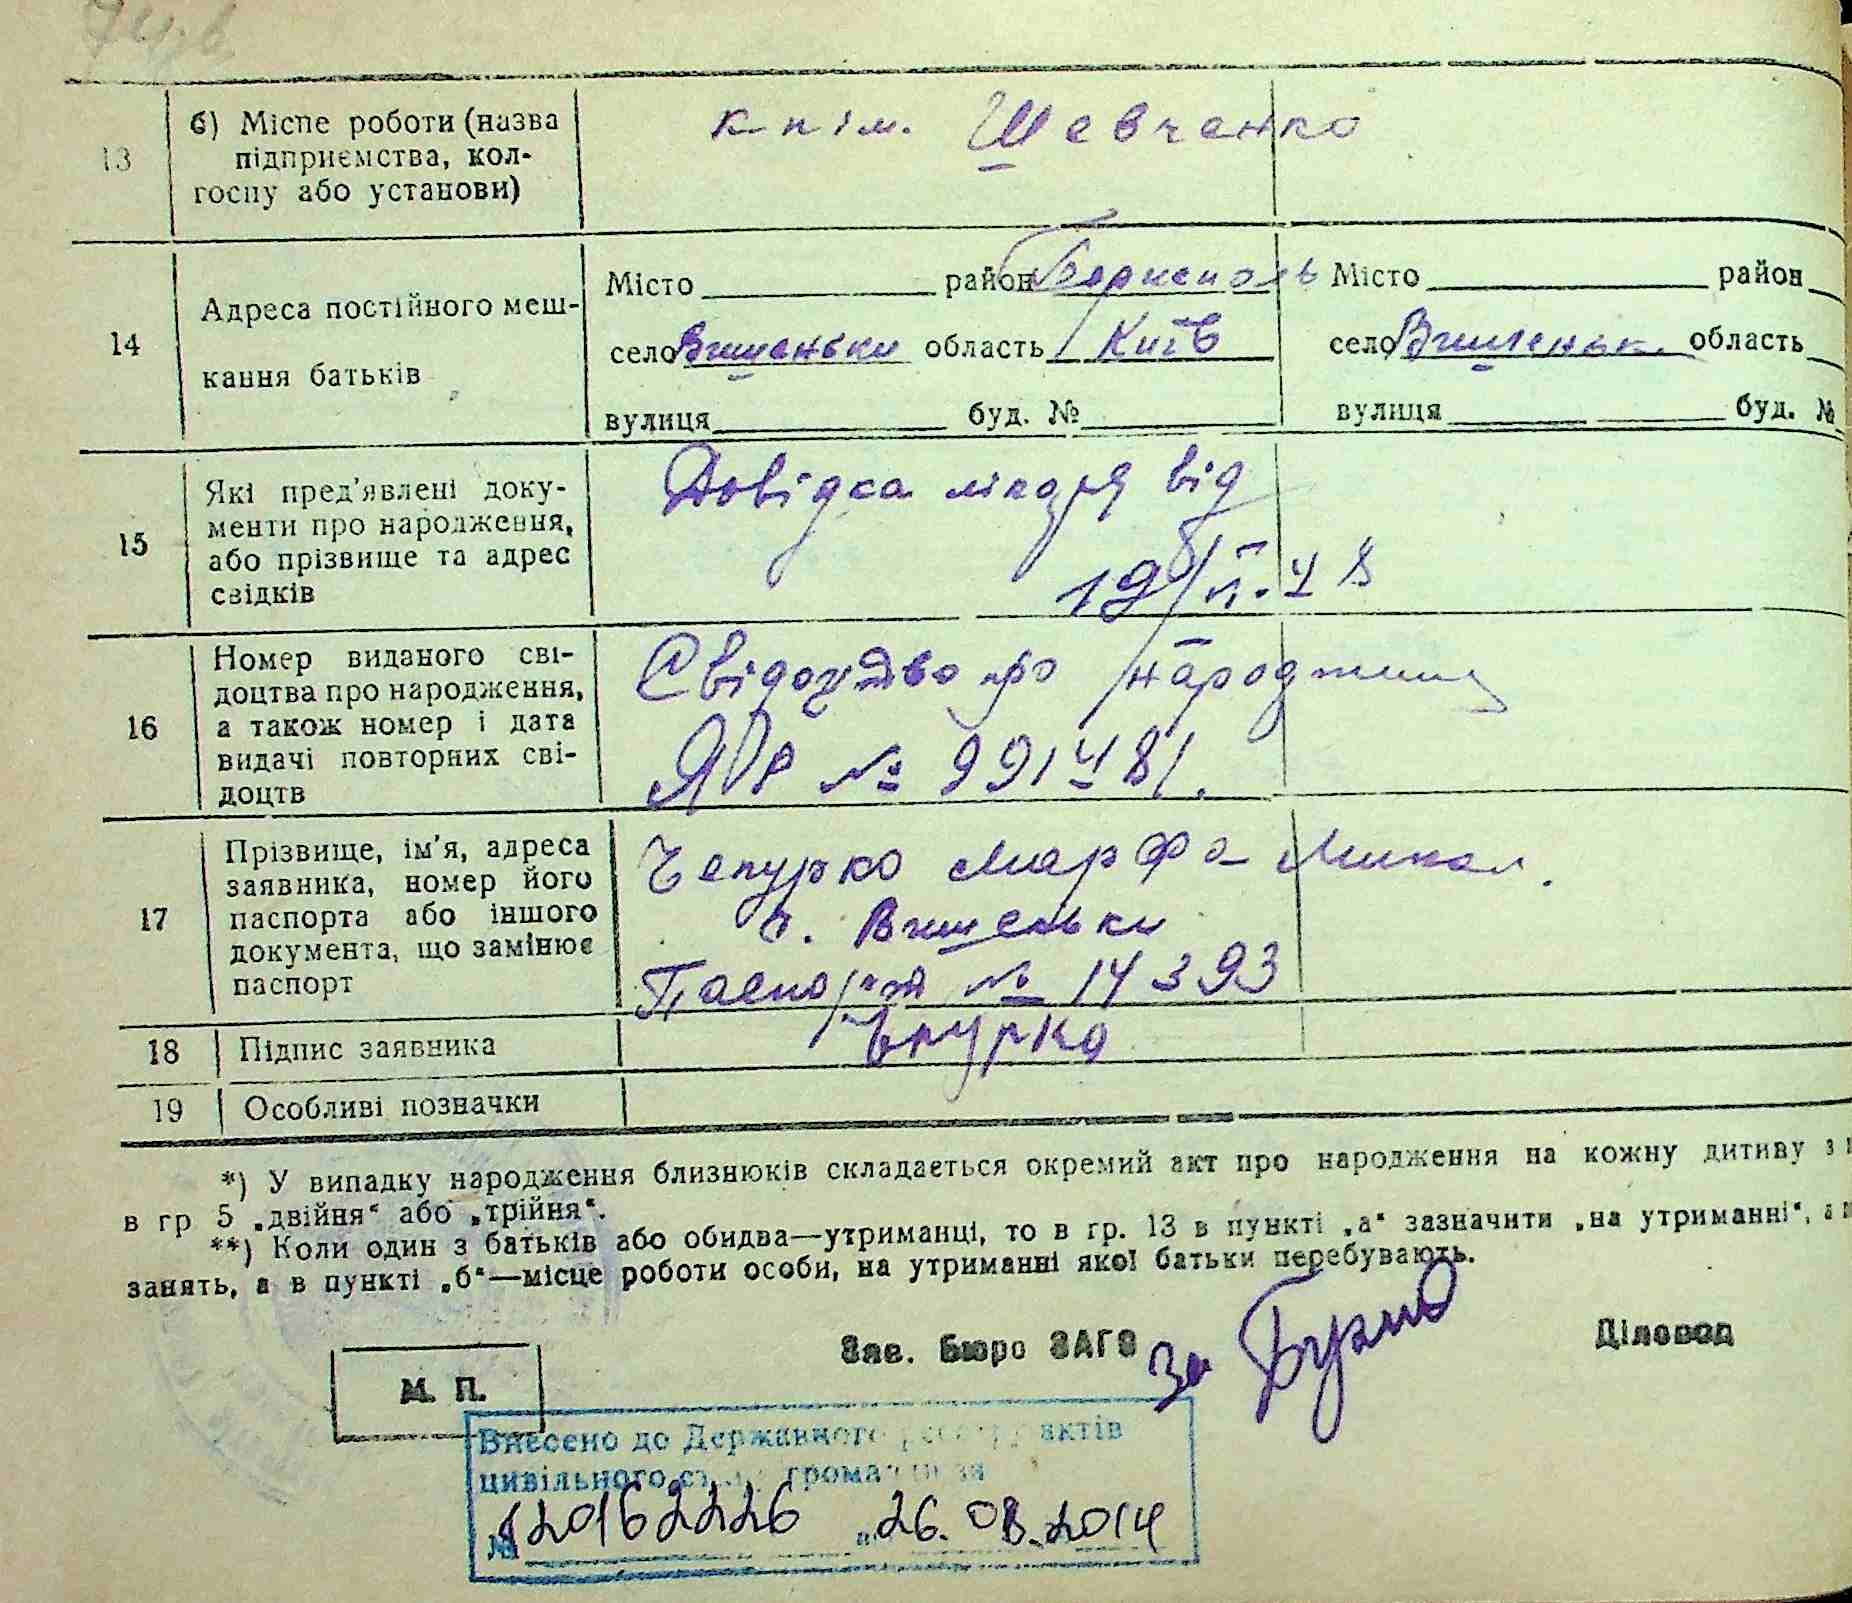 13
б) Місце роботи (назва
підприємства, кол-
госпу або установи)
к-п ім. Шевченко
14
Адреса постійного меш-
кання батьків
Місто район Бориспіль
село Вишеньки область Київ
вулиця буд. №
Місто район
село Вишеньк. область
вулиця буд. №
15
Які пред'явлені доку-
менти про народження,
або прізвище та адрес
свідків
Довідка лікаря від
16
Номер виданого сві-
доцтва про народження,
а також номер і дата
видачі повторних сві-
доцтв
Свідоцтво про
№ 991481.
17
Прізвище, ім'я, адреса
заявника, номер його
паспорта або іншого
документа, що замінює
паспорт
Чепурко Марфа Микол.
с. Вишеньки
Паспорт № 14393
18
Підпис заявника
Чпурко
19
Особливі позначки
*) У випадку народження близнюків складається окремий акт про народження на кожну дитину з
в гр 5 „двійня“ або „трійня“.
**) Коли один з батьків або обидва—утриманці, то в гр. 13 в пункті „а“ зазначити „на утриманні“, а
занять, а в пункті „б“—місце роботи особи, на утриманні якої батьки перебувають.
Зав. Бюро ЗАГС За
Діловод
М. П.
Внесено до Державного реєстру актів
цивільного стану громадян за
№ 120162226 26.08.2014